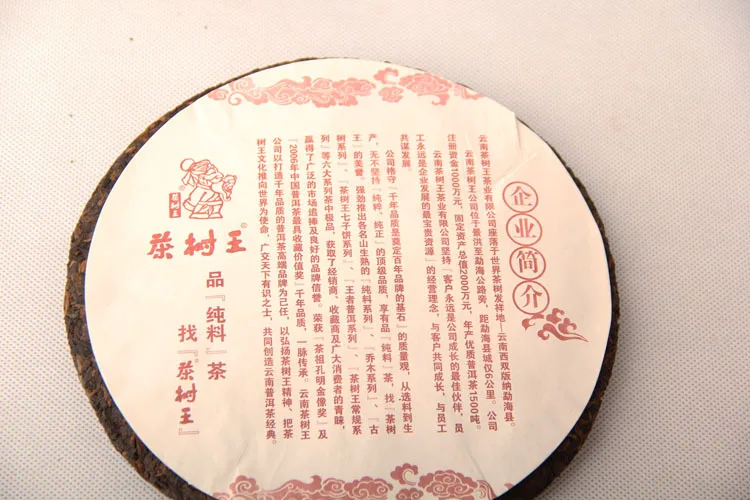 企业简介
云南茶树王茶业有限公司座落于世界茶树发祥地—云南西双版纳勐海县。公司
云南茶树王公司位于景洪至勐海公路旁，距勐海县城仅6公里。公司
注册资金1000万元，固定资产总值2000万元，年产优质普洱茶1500吨。
云南茶树王茶业有限公司坚持『客户永远是公司成长的最佳伙伴，员
工永远是企业发展的最宝贵资源』的经营理念，与客户共同成长，与员工
共谋发展。
公司恪守『千年品质是奠定百年品牌的基石』的质量观，从选料到生
产，无不坚持『纯粹、纯正』的顶级品质，享有品『纯料』茶，找『茶树
王』的美誉。强劲推出各名山生熟的『纯料系列』、『乔木系列』、『古
树系列』、『茶树王七子饼系列』、『王者普洱系列』、『茶树王常规系
列』等六大系列茶中极品，获取了经销商、收藏商及广大消费者的青睐，
赢得了广泛的市场追捧及良好的品牌信誉。荣获『茶祖孔明金像奖』及
『2006年中国普洱茶最具收藏价值奖』千年品质，一脉传承。云南茶树王
公司以打造千年品质的普洱茶高端品牌为己任，以弘扬茶树王精神、把茶
树王文化推向世界为使命，广交天下有识之士，共同创造云南普洱茶经典。
茶树王
茶树王®
品『纯料』茶
找『茶树王』